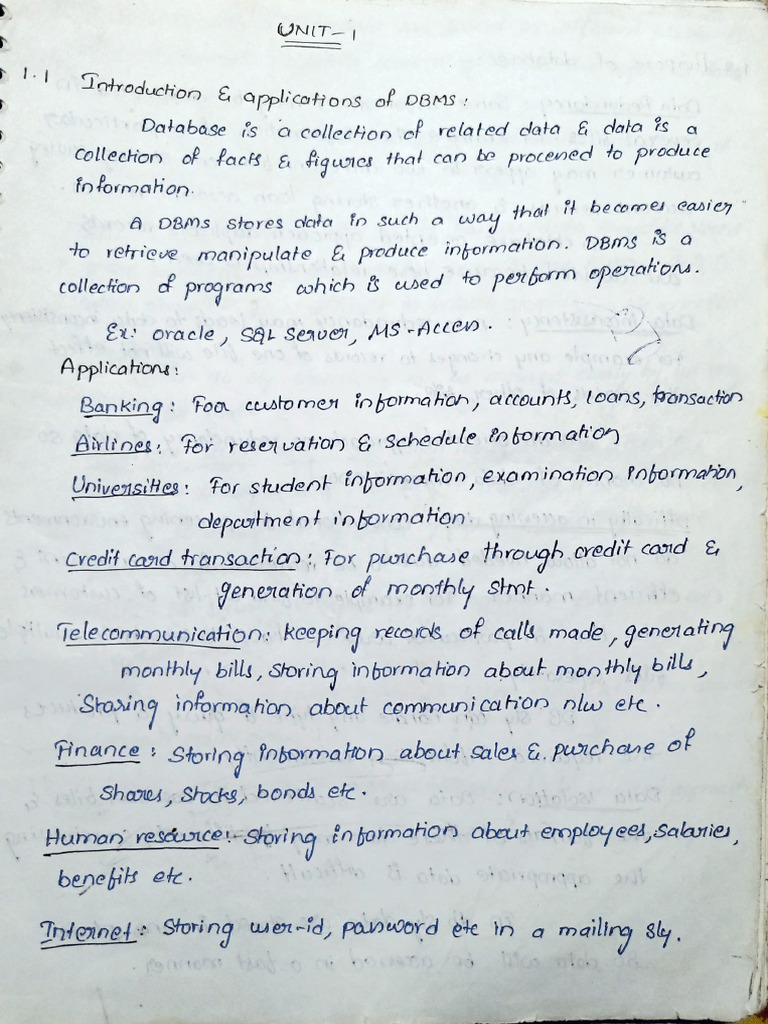 UNIT-1
1.1 Introduction & applications of DBMS:
Database is a collection of related data & data is a
collection of facts & figures that can be processed to produce
information.
A DBMS stores data in such a way that it becomes easier
to retrieve manipulate & produce information. DBMS is a
collection of programs which is used to perform operations.
Ex: oracle, SQL Server, MS-Access.
Applications:
Banking: For customer information, accounts, loans, transaction
Airlines: For reservation & schedule information
Universities: For student information, examination information,
department information
Credit card transaction: For purchase through credit card &
generation of monthly stmt.
Telecommunication: keeping records of calls made, generating
monthly bills, storing information about monthly bills,
Storing information about communication n/w etc.
Finance: Storing information about sales & purchase of
shares, stocks, bonds etc.
Human resource:- Storing information about employees, salaries,
benefits etc.
Internet: Storing user-id, password etc in a mailing s/y.